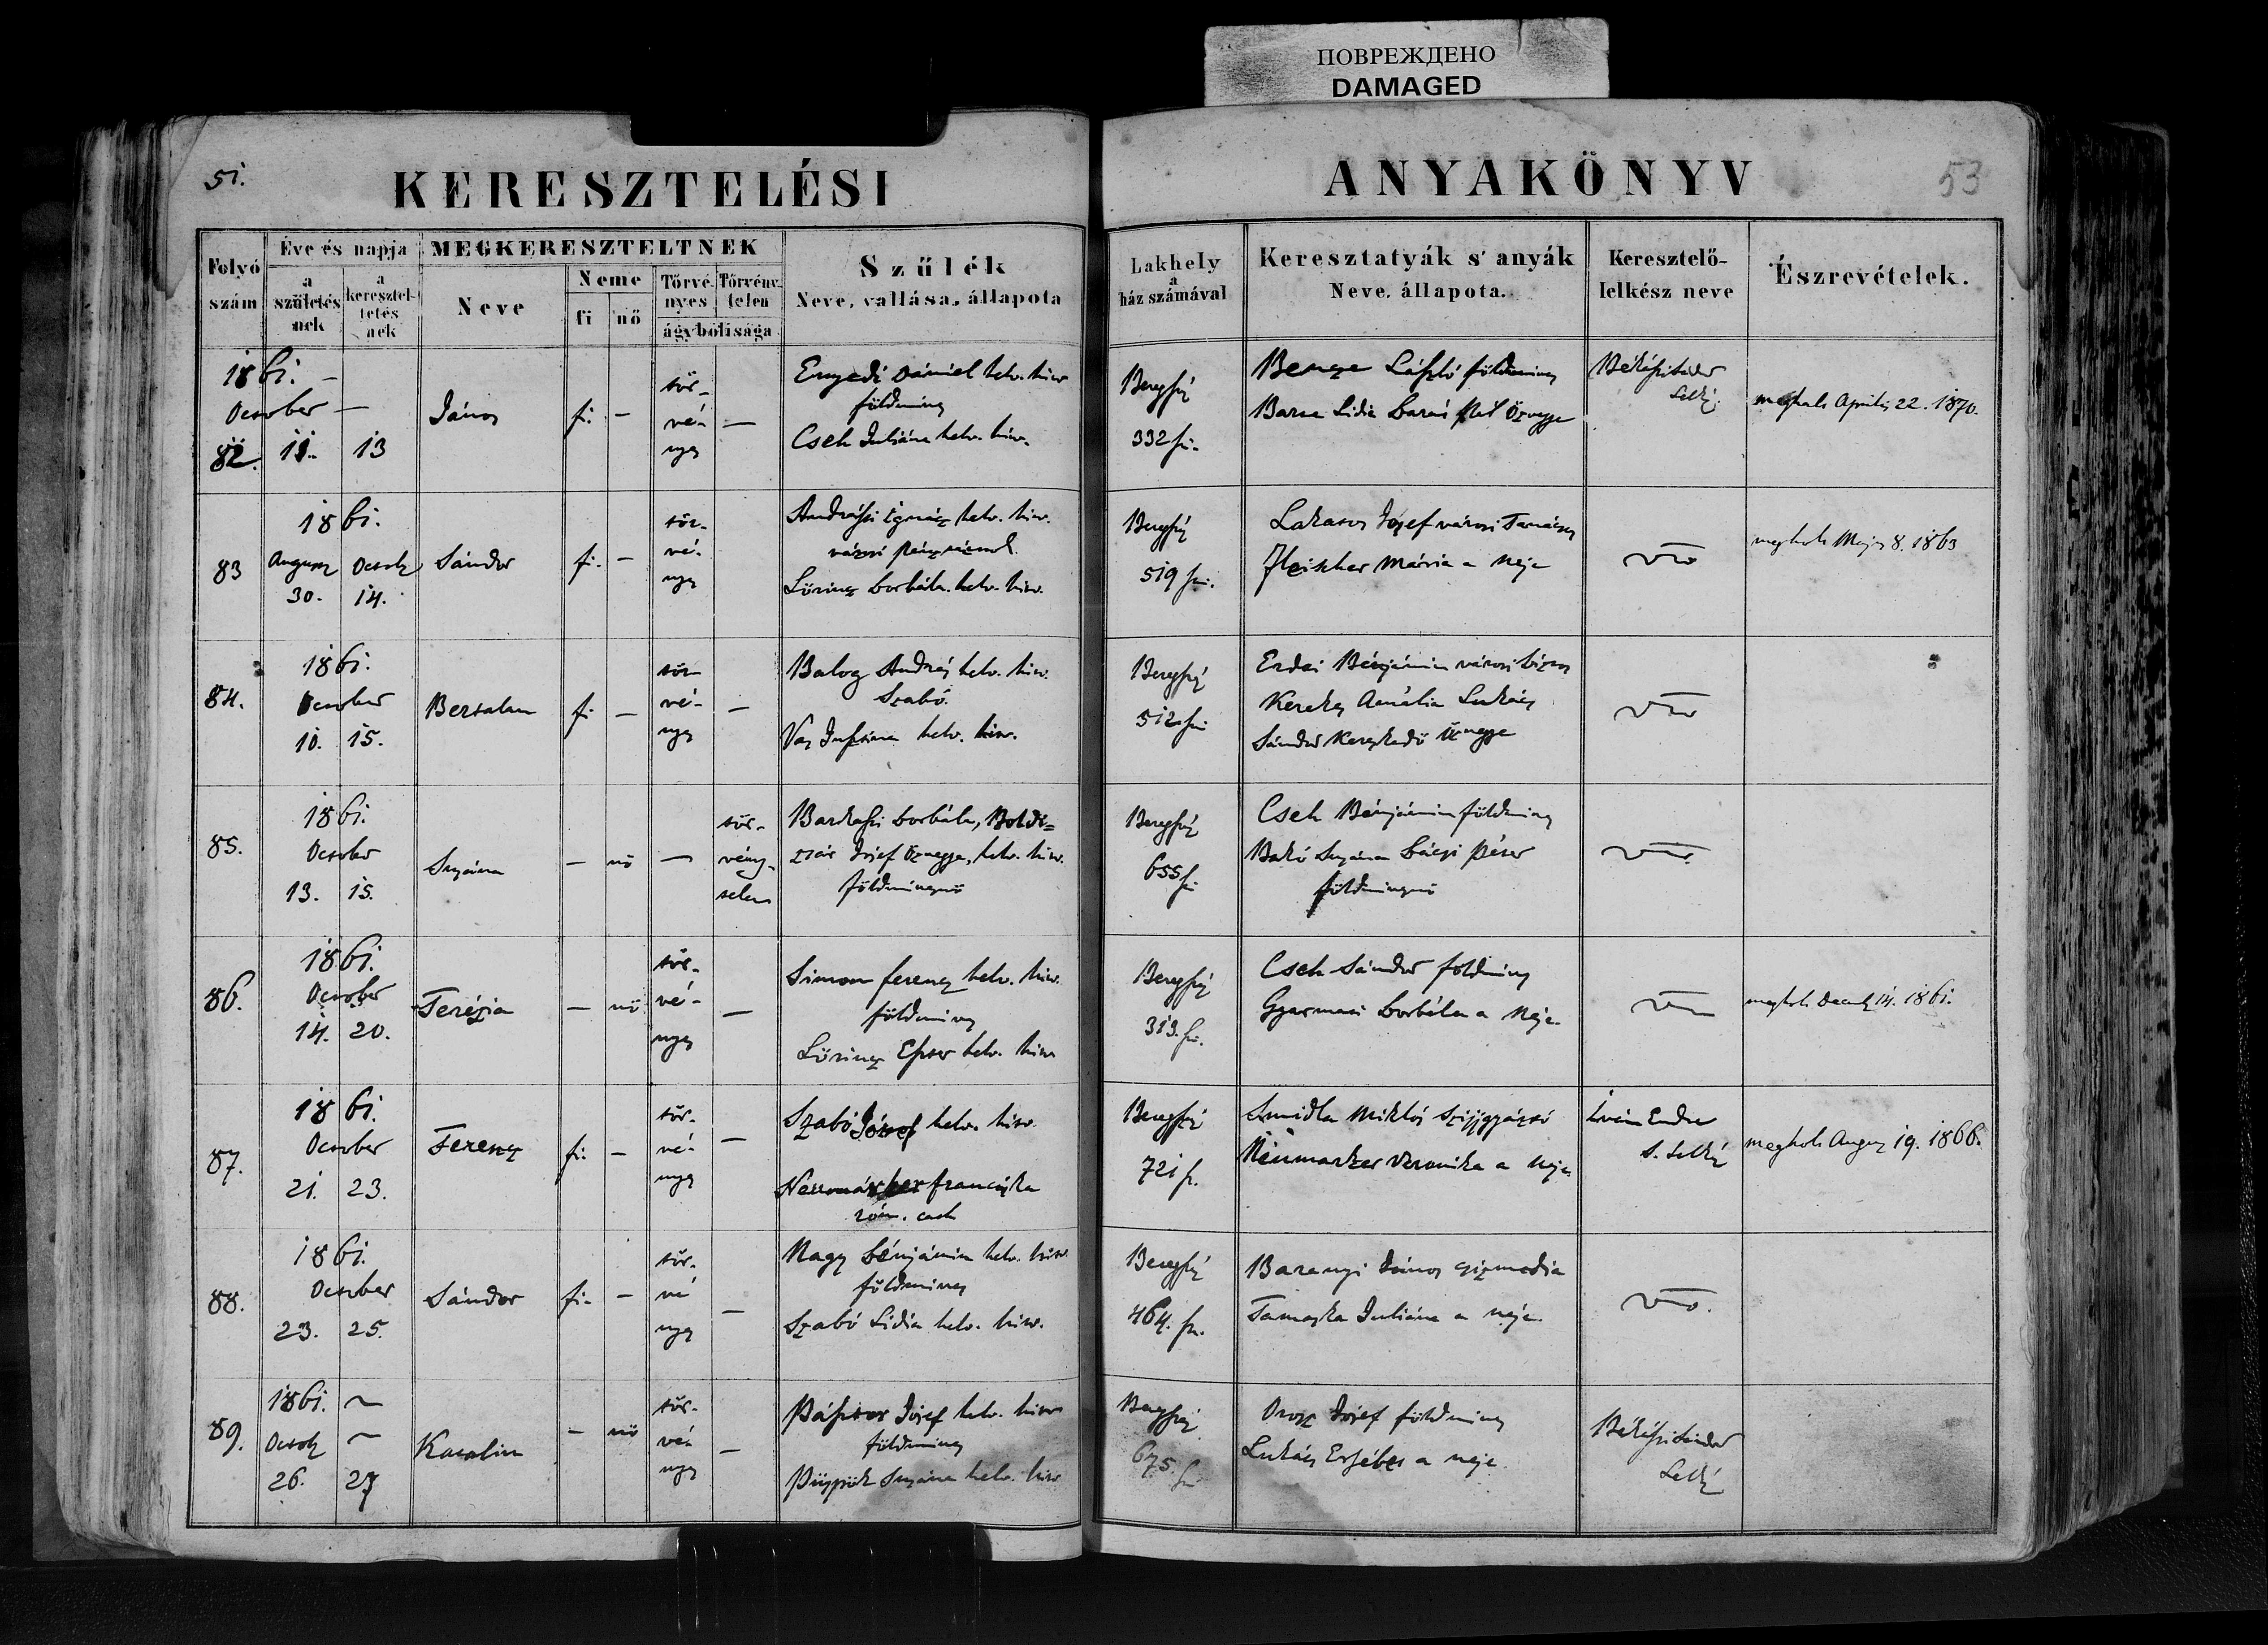 ПОВРЕЖДЕНО
DAMAGED
51.
KERESZTELÉSI
ANYAKÖNYV
53
Folyó szám
Éve és napja
a születésnek
a kereszteltetésnek
MEGKERESZTELTNEK
Neve
Neme
fi
nő
Törvényes
Törvénytelen
ágybóli sága
Szűlék
Neve, vallása, állapota
Lakhely
a
ház számával
Keresztatyák s' anyák
Neve, állapota.
Keresztelő-
lelkész neve
Észrevételek.
1861. –
October –
82. 11. 13
János
fi. –
tör-
vé- –
nyes
Enyedi Dániel helv. hitv.
földmives
Cseh Juliána helv. hitv.
Beregsz
332 sz.
Bencze László földmives
Barta Lidia özvegye
Békássi Sándor
Lelkész
meghalt Április 22. 1870.
1861.
83 August 30. Octob 14.
Sándor
fi. –
tör-
vé-
nyes
Andrássi Ignácz helv. hitv.
városi pénztárnok
Lőrincz Borbála helv. hitv.
Beregsz
519 sz.
Lakatos József városi Tanácsos
Fleischer Mária a neje
meghalt Majus 8. 1863
1861.
84. October
10. 15.
Bertalan
fi –
tör
vé- –
nyes
Balog András helv. hitv.
Szabó
Vas Justina helv. hitv.
Beregsz
512 sz
Erdei Bénjámin városi
Kerekes Amália Lukács
Sándor Kereskedő Özvegye
1861.
85. October
13. 15.
Susána
– nő –
tör-
vény-
telen
Barkassi Borbála, Boldi=
zsár József Özvegye, helv. hitv.
földmivesnő
Beregsz
655 sz
Cseh Bénjámin földmives
Bakó Susána Bácsi Péter
földmivesnő
1861.
86. October
14. 20.
Terézia
– nő
tör-
vé- –
nyes
Simon ferencz helv. hitv.
földmives
Lőrincz Eszter helv. hitv
Beregsz
313. sz.
Cseh Sándor földmives
Gyarmati Borbála a neje
meghalt Decemb 14. 1861.
1861.
87. October
21. 23.
Ferencz
fi. –
tör-
vé- –
nyes
Szabó József helv. hitv.
franciska
róm. cath
Beregsz
721 sz.
Smidla Miklós Szijjgyártó
Neümarker Veronika a neje
Iván Endre
s. Lelkész
meghalt August 19. 1866.
1861.
88. October
23. 25.
Sándor
fi. –
tör-
vé –
nyes
Nagy Bénjámin helv. hitv.
földmives
Szabó Lidia helv. hitv.
Beregsz
464. sz.
Baranyi János csizmadia
Tamaska Juliána a neje.
1861. ~
89. Octob ~
26. 27
Karolin
– nő
tör-
vé- –
nyes
Pásztor József helv. hitv
földmives
Püspök Susána helv. hitv
Beregsz
675. sz
Orosz József földmives
Lukács Ersébet a neje
Békássi Sándor
Lelkész